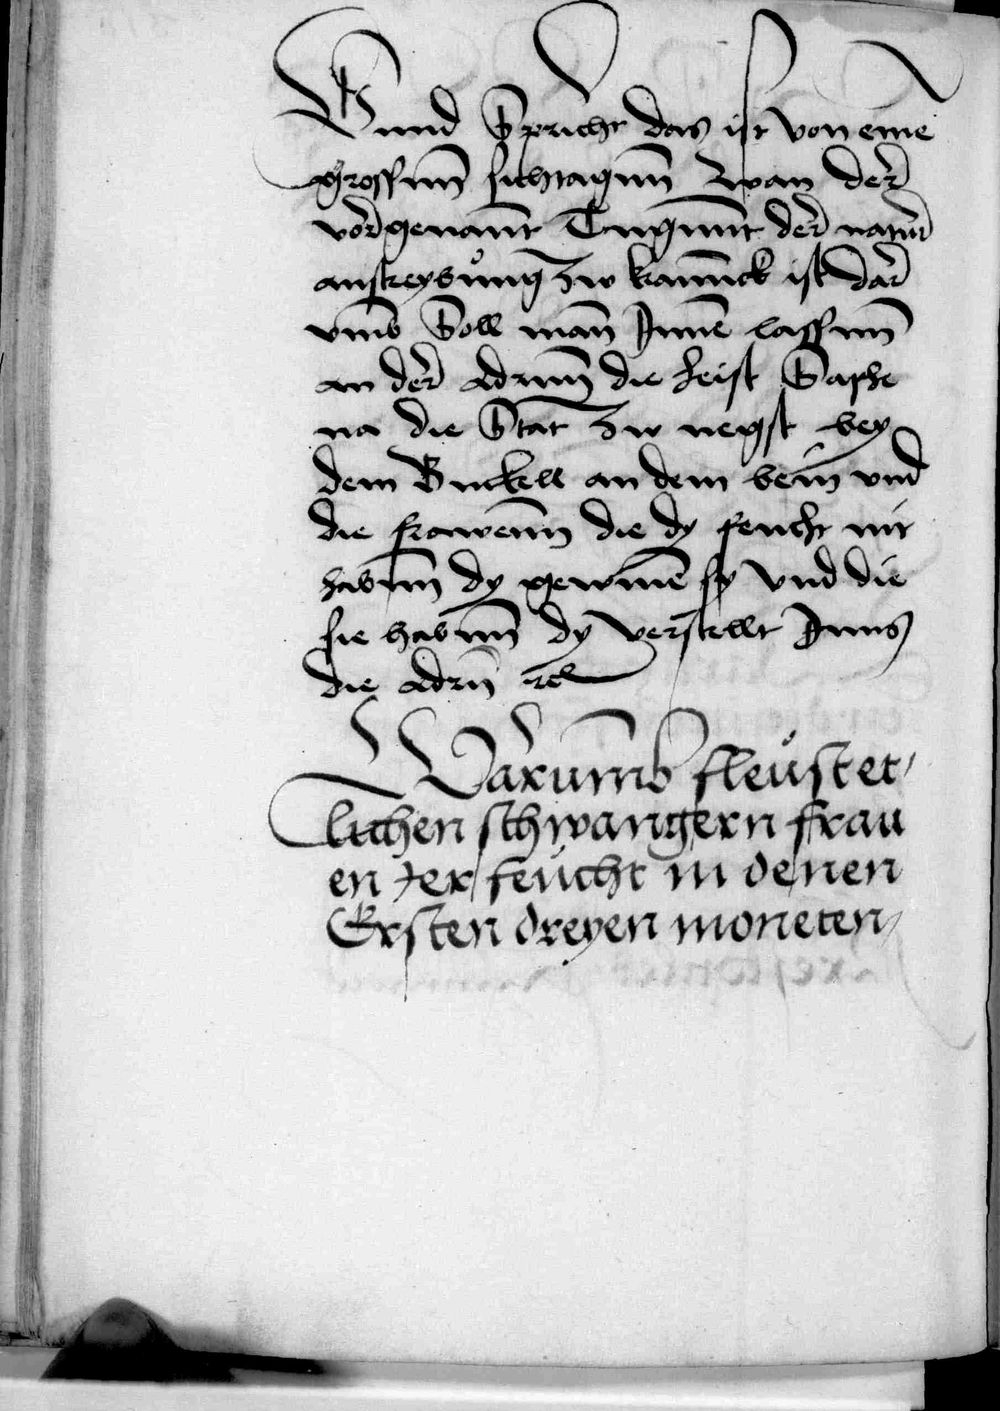 Er unnd Spricht das ist von eine
grossenn siechtagenn Zwan der
vorgenant Tugennt der natur
austreybung zw kranck ist dar
vmb Soll man Inne lassenn
an der Adernn die heist Saphe
na die Stat zw negst bey
dem Buckell an dem bein vnd
die frawenn die dy feucht nit
habenn dy gewinne sy vnd die
sie habenn dy verstellt Inns
die Adern
Warumb fleust et
lichen schwangern frau
en Jer feucht in denen
Ersten dreyen moneten